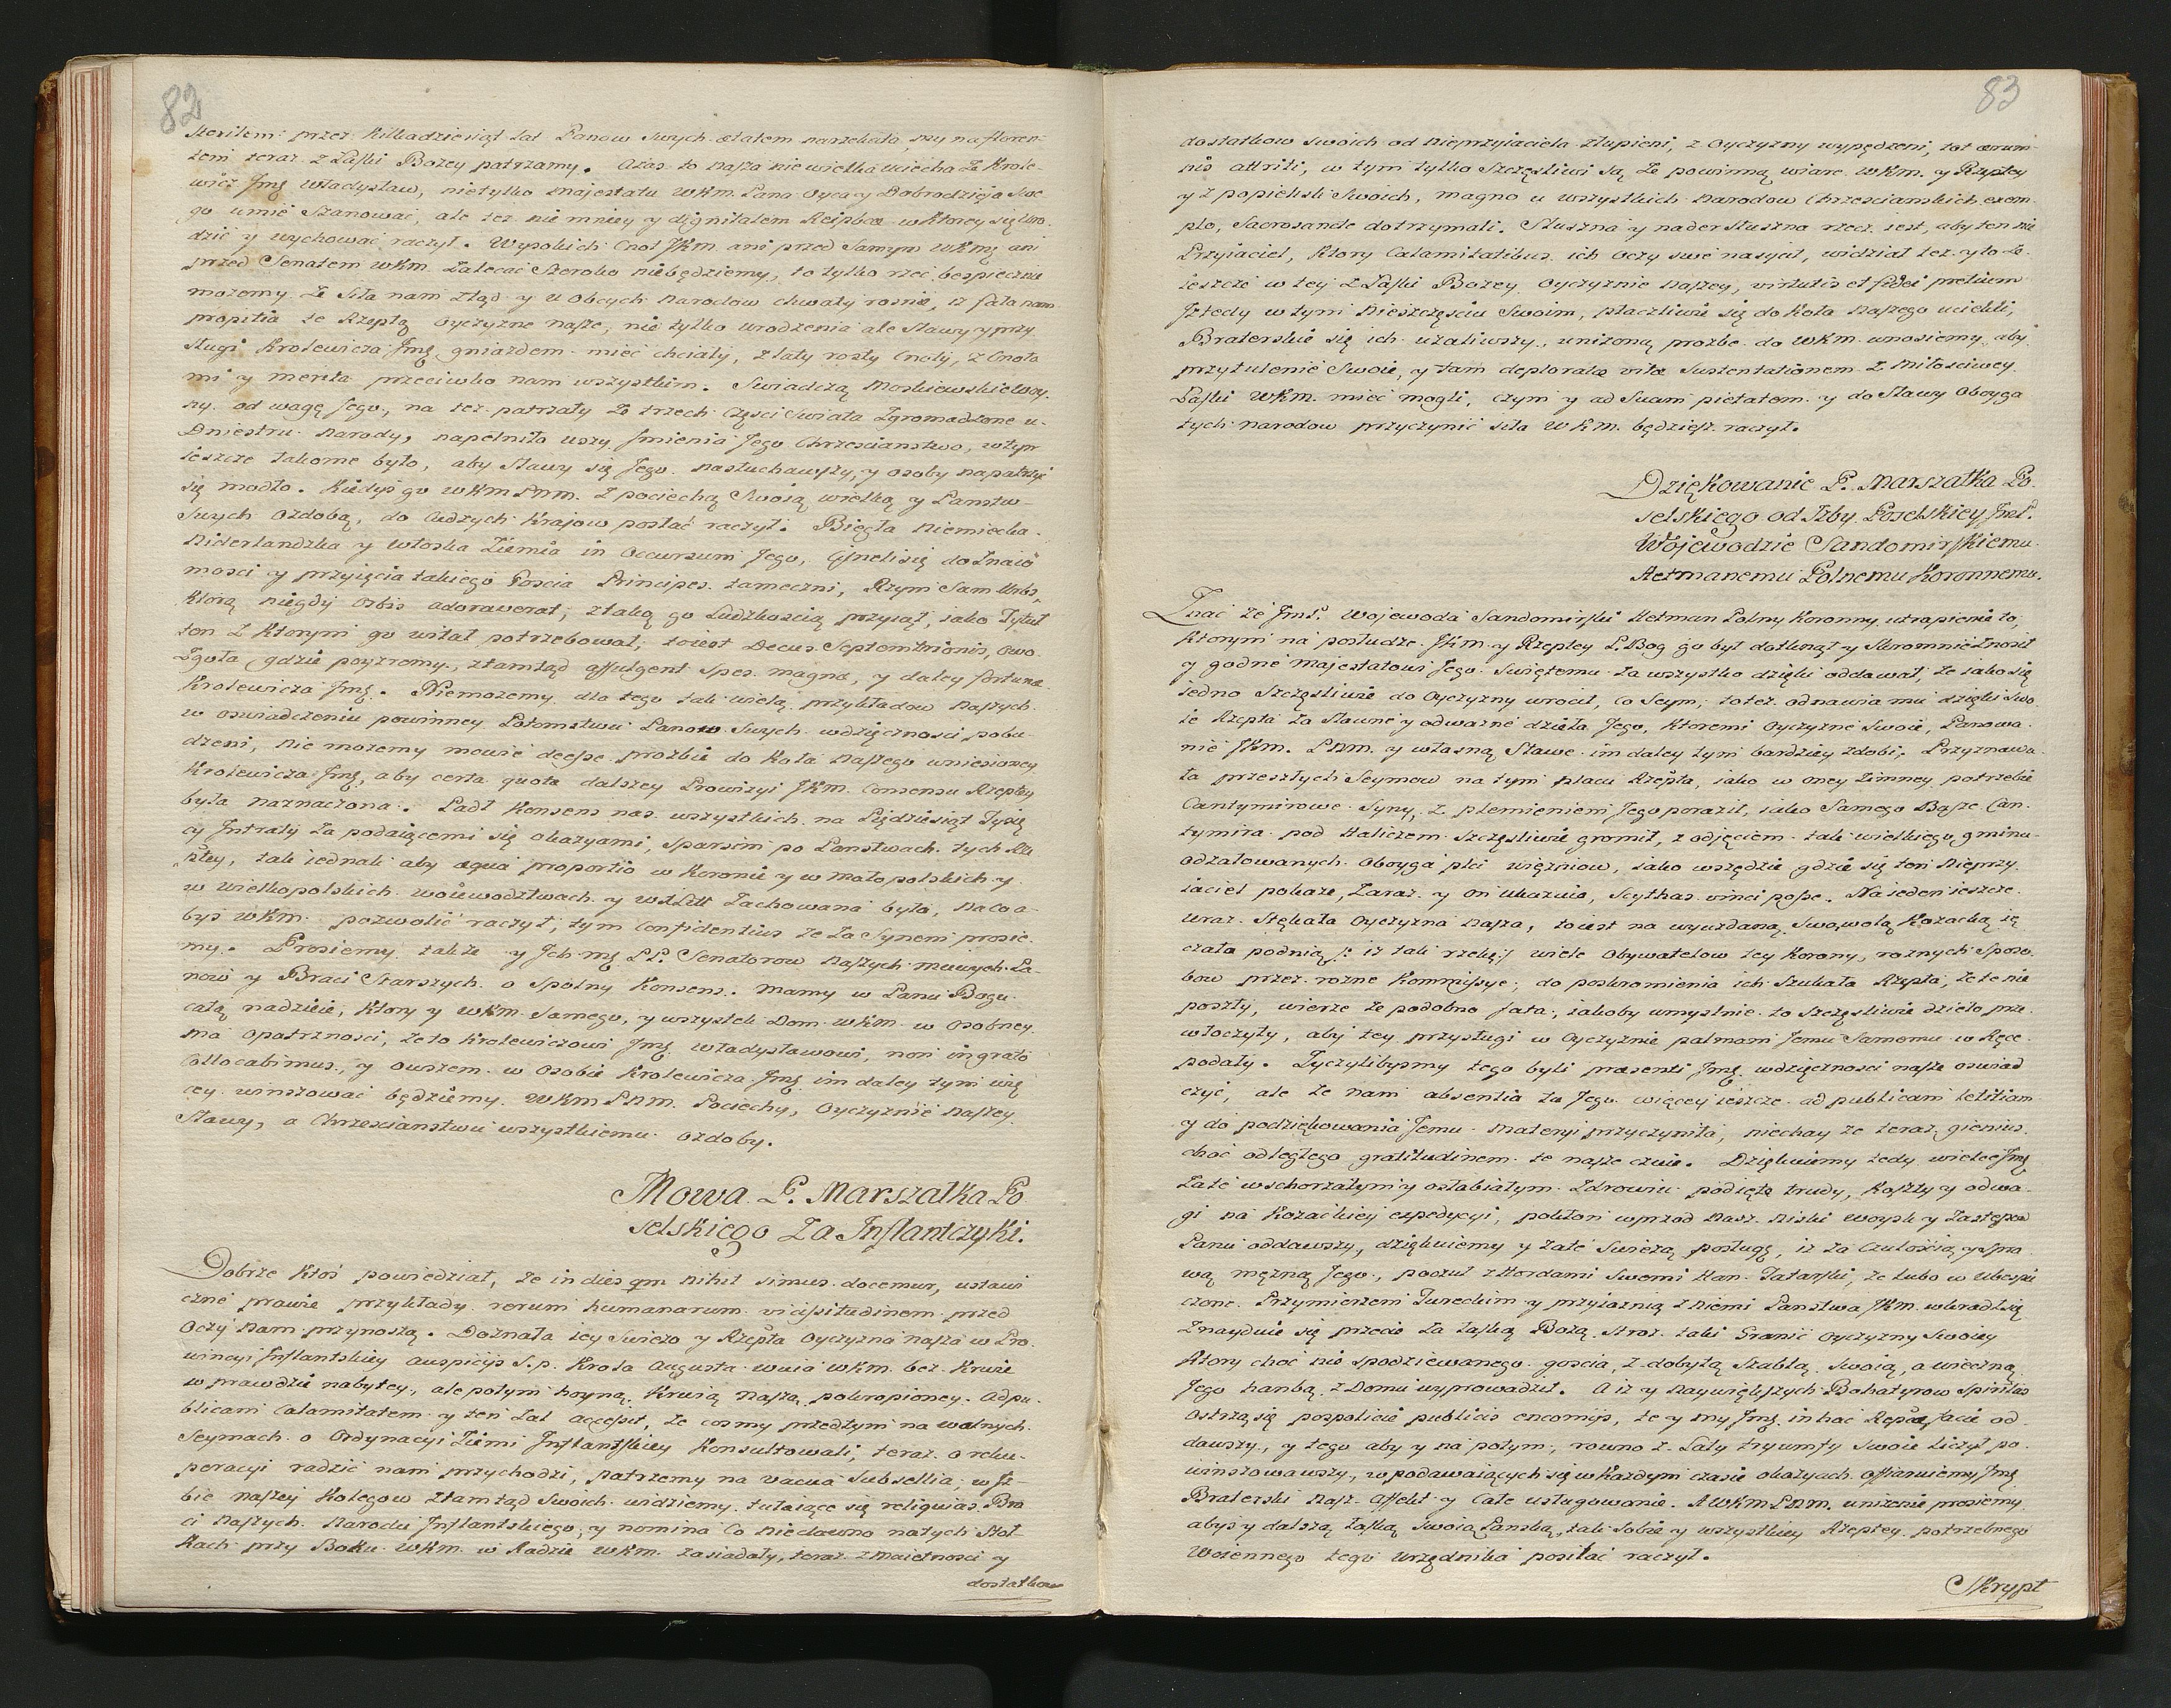 82
sterilem przez kilkadziesiąt lat Panow swych ætatem narzekała, my na floren-
tem teraz z Łaski Bozey patrzamy. Azas to nasza nie wielka uiecha ze Krole-
wicz Jmę Władysław, nietylko Majestatu WKM. Pana Oyca y Dobrodzieja swe
go umie szanować, ale tez nie mniey y dignitatem Reipbcæ w ktorey się uro
dzić y wychować raczył. Wysokich Cnot JKM. ani przed samym WKMę ani
przed Senatem WKM. zalecać szeroko niebędziemy, to tylko rzec bespiecznie
mozemy ze siła nam ztąd y u obcych Narodow chwały rosnie, iz fata nam
propitia te Rzeptą Oyczyznę nasze, nie tylko urodzenia ale sławy y przy
sługi Krolewicza Jmę gniazdem mieć chciały, z laty rosły Cnoty, z Cnota
mi y merita przeciwko nam wszystkim. Swiadczą Moskiewskie
od wagę Jego, na tez patrzały ze trzech Częsci Swiata zgromadzone u
Dniestru Narody, napełniło uszy Jmienia Jego Chrzescianstwo, w tym
ieszcze łakome było, aby sławy się Jego nasłuchawszy, y osoby napatrzyć
się mogło. Kiedys go WKM PNM. z pociechą swoią wielką y Panstw
swych ozdobą, do Cudzych Krajow posłać raczył. Biegła Niemiecka
Niderlandzka y Włoska Ziemia in Occursum Jego, Cisneli się do znaio
mosci y przyięcia takiego Goscia Principes tameczni, Rzym sam Urbs,
ktorą niegdy Orbis adoraverat, z taką go Ludzkoscią przyiął, iako Tytuł
ten z ktorym go witał potrzebował, toiest Decus Septemtrionis, owo
zgoła gdzie poyzremy, ztamtąd affulgent Spes magnæ, y daley fortunæ
Krolewicza Jmę. Niemozemy dla tego tak wielą przykładow naszych
w oswiadczeniu powinney Potomstwu Panow swych wdzięcznosci pobu
dzeni, nie mozemy mowię deesse prozbie do Koła naszego wniesioney
Krolewicza Jmę, aby certa quota dalszey Prowizyi JKM. Consensu Rzeptey
była naznaczona. Padł Konsens nas wszystkich na Pięcdziesiąt Tysię
cy Jntraty za podaiącemi się okazyami, sparsim po Panstwach tych Rze
ptey, tak iednak aby æqua proportio w Koronie y w Małopolskich y
w Wielkopolskich Woiewodztwach y WXLitt zachowana była, na co a
bys WKM. pozwolić raczył, tym Confidentius ze za Synem prosie
my. Prosiemy takze y Jch Mę PP. Senatorow naszych Pa-
now y Braci Starszych o spolny Konsens. Mamy w Panu Bogu
całą nadzieię, ktory y WKM. samego, y wszystek Dom WKM. w osobney
ma opatrznosci, ze to Krolewiczowi Jmę Władysławowi, non ingrato
Collocabimus, y owszem w osobie Krolewicza Jmę im daley tym wię
cey winszować będziemy WKM PNM. Pociechy, Oyczyznie naszey
Sławy, a Chrzescianstwu wszystkiemu ozdoby.
Mowa P. Marszałka Po
selskiego Za Jnflantczyki.
Dobrze ktoś powiedział, ze in dies qm nihil simus docemur, ustawi
czne prawie przykłady rerum humanarum vicissitudinem przed
oczy nam przynoszą. Doznała iey swiezo y Rzepta Oyczyzna nasza w Pro
wincyi Jnflantskiey auspicijs S.p. Krola Augusta Wuia WKM. bez Krwie
w prawdzie nabytey, ale potym hoyną Krwią naszą pokropioney. Ad pu
blicam Calamitatem y ten zal accessit, ze cosmy przedtym na walnych
Seymach o Ordynacyi Ziemi Jnflantskiey Konsultowali, teraz o reku
peracyi radzić nam przychodzi, patrzemy na vacua Subsellia, w Jz-
bie naszey Kolegow ztamtąd swoich widziemy tułaiące się reliquias Bra
ci naszych Narodu Jnflantskiego, y nomina co niedawno na tych stoł
kach przy Boku WKM. w Radzie WKM. zasiadały, teraz z maietnosci y
dostatkow
83
dostatkow swoich od nieprzyiaciela złupieni, z Oyczyzny wypędzeni, tot ærum
nis attriti, w tym tylko szczęsliwi są ze powinną wiarę WKM. y Rzeptey
y z popielisk swoich, magno u wszystkich Narodow Chrzescianskich exem
plo, Sacrosancte dotrzymali. Słuszna y nader słuszna rzecz iest, aby ten nie
Przyiaciel, ktory Calamitatibus ich oczy swe nasycił, widział tez y to ze
ieszcze w tey z Łaski Bozey Oyczyznie naszey, virtutis et fidei pretium
Jz tedy w tym nieszczęsciu swoim, płaczliwie się do Koła naszego uciekli,
Braterskie się ich uzaliwszy, unizoną prozbę do WKM. wnosiemy, aby
przytulenie swoie, y tam deploratæ vitæ sustentationem z miłosciwey
Łaski WKM. mieć mogli, czym y ad suam pietatem y do sławy oboyga
tych narodow przyczynić siła WKM. będziesz raczył.
Dziękowanie P. Marszałka Po
selskiego od Jzby Poselskiey JmP.
Wojewodzie Sandomirskiemu
Hetmanemu Polnemu Koronnemu.
Znać ze JmP. Wojewoda Sandomirski Hetman Polny Koronny, utrapienie to,
ktorym na posłudze JKM. y Rzeptey P. Bog go był dotknął y skromnie znosił
y godne Majestatowi Jego Swiętemu za wszystko dzięki oddawał, ze iako się
iedno szczęsliwie do Oyczyzny wrocił, co Seym, to tez odnawia mu dzięki swo
ie Rzepta za sławne y odwazne dzieła Jego, ktoremi Oyczyznę swoię, Panowa
nie JKM. PNM. y własną sławę im daley tym bardziey zdobi. Przyznawa
ła przeszłych Seymow na tym placu Rzepta, iako w oney zimney potrzebie
Cantymirowe Syny, z plemieniem Jego poraził, iako samego Baszę Can
tymira pod Haliczem szczęsliwie gromił, z odjęciem tak wielkiego gminu
odzałowanych oboyga płci więzniow, iako wszędzie gdzie się ten nieprzy
iaciel pokaze, zaraz y on ukazuie, Scythas vinci posse. Na ieden ieszcze
uraz stękała Oyczyzna nasza, toiest na wyuzdaną swawolą Kozacką, ię
czała podnią /: iz tak rzekę :/ wiele obywatelow tey Korony, roznych sposo
bow przez rozne Kommissye, do poskromienia ich szukała Rzepta, ze te nie
poszły, wierzę ze podobno fata, iakoby umyslnie to szczęsliwie dzieło prze
włoczyły, aby tey przysługi w Oyczyznie palmam Jemu samemu w ręce
podały. Zyczylibysmy tego byli præsenti Jmę wdzięcznosci nasze oswiad
czyć, ale ze nam absentia ta Jego więcey ieszcze ad publicam letitiam
y do podziękowania Jemu materyi przyczyniła, niechay ze teraz gienius
choć odległego gratitudinem te nasze czuie. Dziękuiemy tedy wielce Jmę
za te w schorzałym y osłabiałym zdrowiu podięte trudy, koszty y odwa
gi na Kozackiey expedycyi, pokłon wprzod nasz niski Woysk y zastępow
Panu oddawszy, dziękuiemy y za te swiezą posługę, iz za czułoscią y spra
wą męzną Jego, poczuł z Hordami swemi Han Tatarski, ze lubo w ubespie
czone Przymierzem Tureckim y przyiaznią z niemi Panstwa JKM. wkradł się
znayduie się przecie za łaską Bozą stroz taki Granic Oyczyzny swoiey
ktory choć nie spodziewanego goscia, z dobytą szablą swoią, a wieczną
Jego hanbą z Domu wyprowadził. A iz y naywiększych Bohatyrow spiritus
ostrzą się pospolicie publicis encomijs, te y my Jmę in hac Repcæ facie od
dawszy, y tego aby y na potym, rowno z laty tryumfy swoie liczył po
winszowawszy, w podawaiących się w kazdym czasie okazyach offiaruiemy Jmę
Braterski nasz affekt y całe usługowanie. A WKM PNM. unizenie prosiemy
abys y dalszą łaską swoią Panską, tak sobie y wszystkiey Rzeptey potrzebnego
Woiennego tego urzędnika posilać raczył.
Skrypt